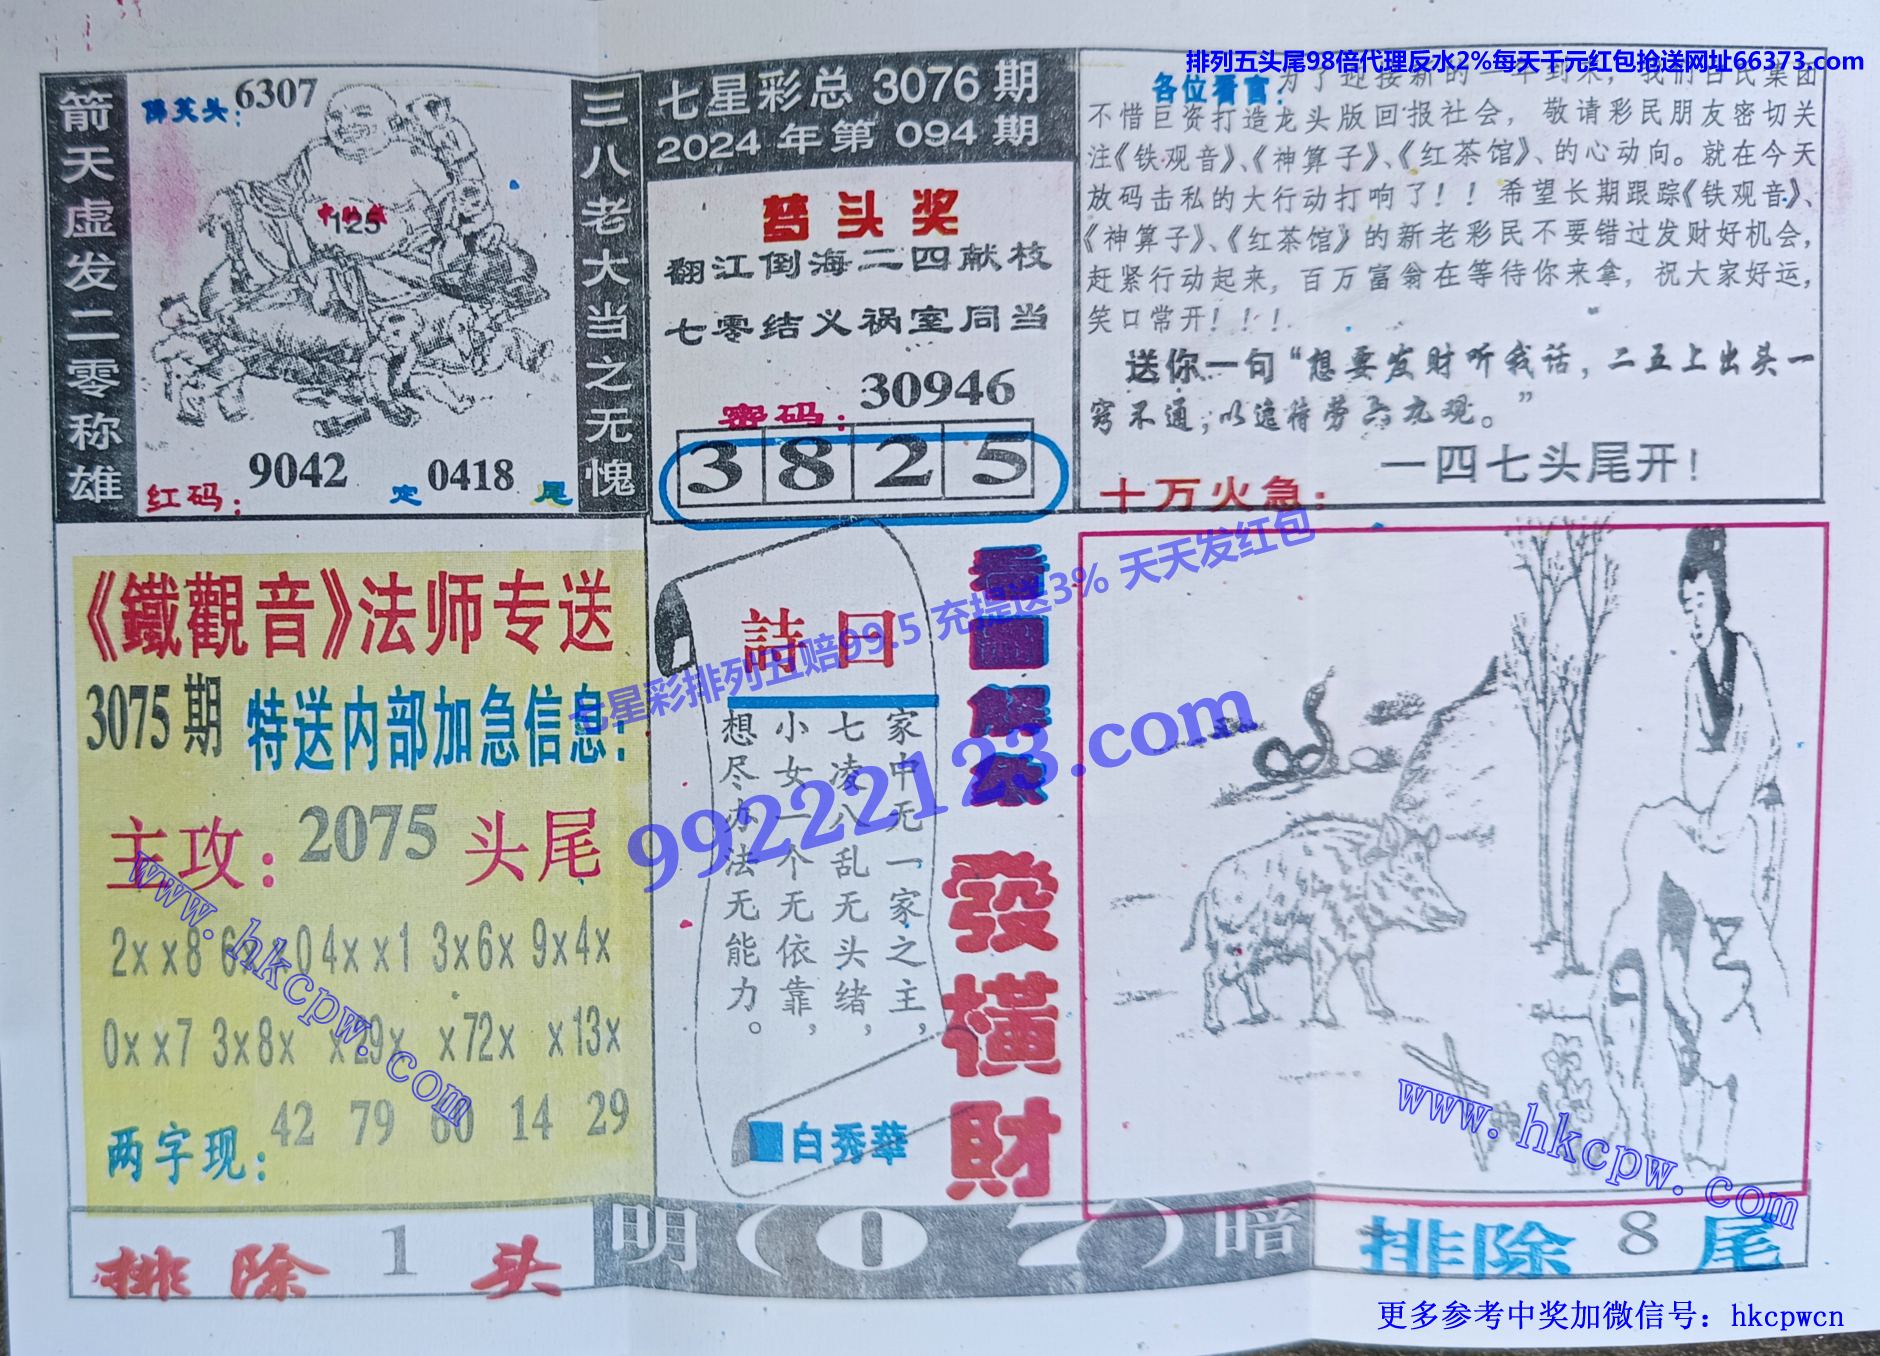 排列五头尾98倍代理反水2%每天千元红包抢送网址66373.com
箭天虚发二零称雄
6307
125
9042
红码：
定 0418 尾
三八老大当之无愧
七星彩总 3076 期
2024 年第 094 期
梦头奖
翻江倒海二四献枝
七零结义祸室同当
密码：
30946
3 8 2 5
各位看官：为了迎接新的一年到来，我们古民集团
不惜巨资打造龙头版回报社会，敬请彩民朋友密切关
注《铁观音》、《神算子》、《红茶馆》、的心动向。就在今天
放码击私的大行动打响了！！希望长期跟踪《铁观音》、
《神算子》、《红茶馆》的新老彩民不要错过发财好机会，
赶紧行动起来，百万富翁在等待你来拿，祝大家好运，
笑口常开！！！
送你一句“想要发财听我话，二五上出头一
窍不通；以逸待劳六九观。”
一四七头尾开！
十万火急：
《鐵觀音》法师专送
3075期 特送内部加急信息：
主攻：2075 头尾
2xx8 6x 0 4xx1 3x6x 9x4x
0xx7 3x8x x29x x72x x13x
两字现：42 79 60 14 29
詩曰
家中无一家之主，
七凌八乱无头绪，
小女一个无依靠，
想尽办法无能力。
白秀華
發橫財
七星彩排列五赔99.5 充提送3% 天天发红包
99222123.com
www.hkcpw.com
www.hkcpw.com
排除 1 头
明（07）暗
排除 8 尾
更多参考中奖加微信号：hkcpwcn